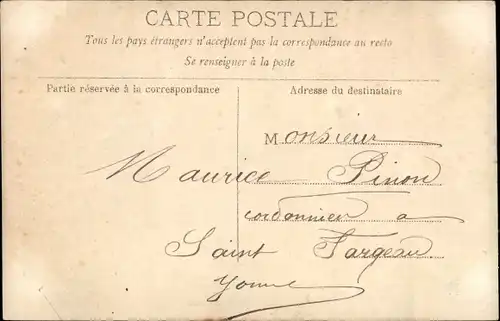 CARTE POSTALE
Tous les pays étrangers n'acceptent pas la correspondance au recto
Se renseigner à la poste
Partie réservée à la correspondance
Adresse du destinataire
Monsieur
Maurice Pinon
cordonnier a
Saint Fargeau
Yonne